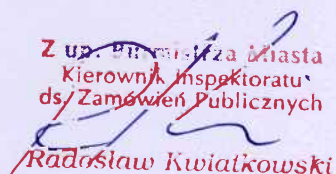 Z up. Burmistrza Miasta
Kierownik Inspektoratu
ds. Zamówień Publicznych
Radosław Kwiatkowski